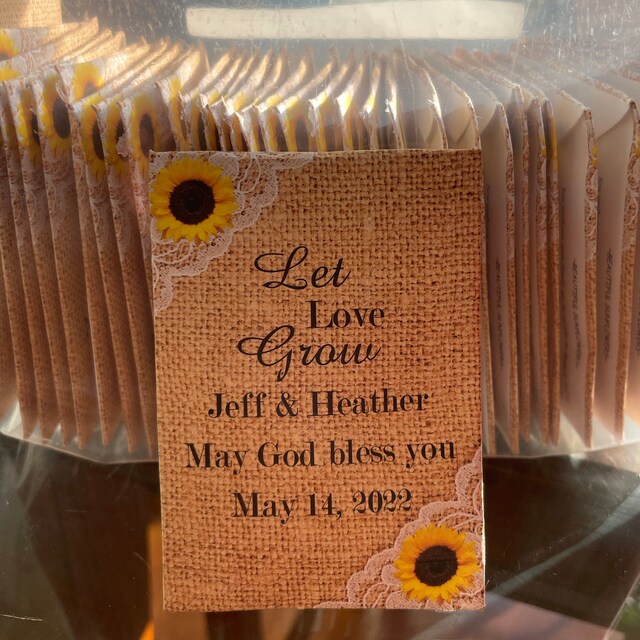 Let
Love
Grow
Jeff & Heather
May God bless you
May 14, 2022